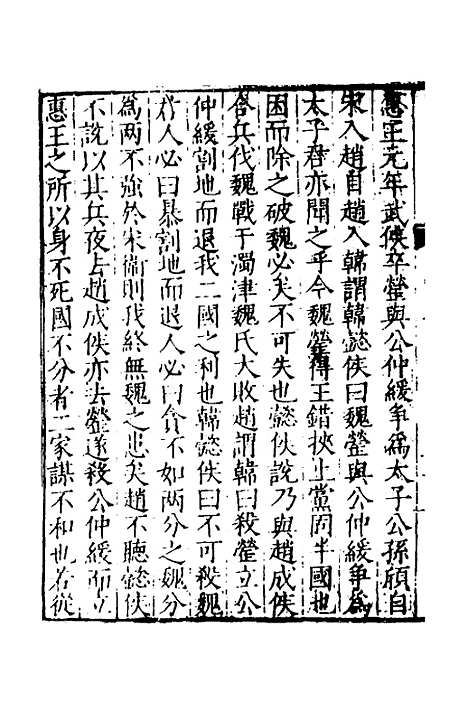 惠王元年武侯卒罃與公仲緩爭爲太子公孫頎自
宋入趙自趙入韓謂韓懿侯曰魏罃與公仲緩爭爲
太子君亦聞之乎今魏罃得王錯挾上黨固半國也
因而除之破魏必矣不可失也懿侯說乃與趙成侯
合兵伐魏戰于濁津魏氏大敗趙謂韓曰殺罃立公
仲緩割地而退我二國之利也韓懿侯曰不可殺魏
君人必曰暴割地而退人必曰貪不如两分之魏分
為两不強於宋衛則我終無魏之患矣趙不聽懿侯
不說以其兵夜去趙成侯亦去罃遂殺公仲緩而立
惠王之所以身不死國不分者二家謀不和也若從